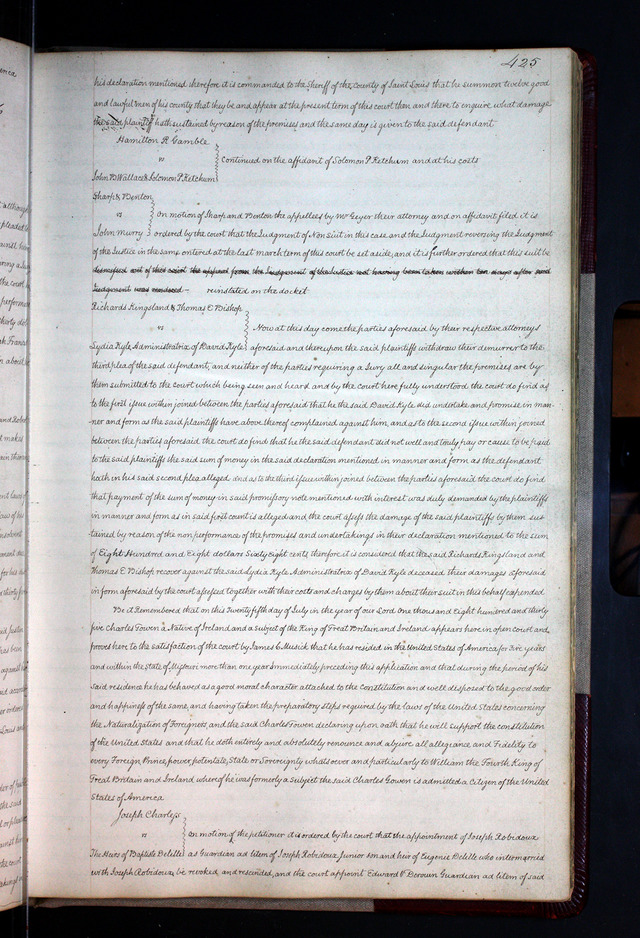 425
his declaration mentioned therefore it is commanded to the Sheriff of the County of Saint Louis that he summon twelve good
and lawful men of his county that they be and appear at the present term of this court then and there to enquire what damage
the said plaintiff hath sustained by reason of the premises and the same day is given to the said defendant
Hamilton R Gamble
vs
Continued on the affidavit of Solomon P Ketchum and at his costs
John B Wallace & Solomon P Ketchum
Sharp & Benton
vs
On motion of Sharp and Benton the appelles by Mr Geyer their attorney and on affidavit filed it is
John Murry
ordered by the court that the Judgment of Non Suit in this case and the Judgment reversing the Judgment
of the Justice in the same entered at the last march term of this court be set aside, and it is further ordered that this suit be
dismissed out of this court the appeal from the Judgement of the Justice not having been taken within ten days after said
Judgement was rendered - reinstated on the docket
Richards Kingsland & Thomas E Bishop
vs
Now at this day come the parties aforesaid by their respective attorneys
Lydia Kyle Administratrix of David Kyle
aforesaid and thereupon the said plaintiffs withdraw their demurrer to the
third plea of the said defendant, and neither of the parties requiring a Jury all and singular the premises are by
them submitted to the court which being seen and heard and by the court here fully understood the court do find as
to the first issue within joined between the parties aforesaid that he the said David Kyle did undertake and promise in man-
ner and form as the said plaintiffs have above thereof complained against him, and as to the second issue within joined
between the parties aforesaid the court do find that he the said defendant did not well and truly pay or cause to be paid
to the said plaintiffs the said sum of money in the said declaration mentioned in manner and form as the defendant
hath in his said second plea alleged and as to the third issue within joined between the parties aforesaid the court do find
that payment of the sum of money in said promissory note mentioned with interest was duly demanded by the plaintiffs
in manner and form as in said first count is alleged and the court assess the damage of the said plaintiffs by them sus
tained by reason of the non performance of the promises and undertakings in their declaration mentioned to the sum
of Eight Hundred and Eight dollars Sixty Eight cents, therefore it is considered that the said Richards Kingsland and
Thomas E Bishop recover against the said Lydia Kyle Administratrix of David Kyle deceased their damages aforesaid
in form aforesaid by the court assessed together with their costs and charges by them about their suit in this behalf expended
Be it Remembered that on this Twenty fifth day of July in the year of our Lord One thousand and Eight hundred and thirty
five Charles Gowen a Native of Ireland and a subject of the King of Great Britain and Ireland appears here in open court and
proves here to the satisfaction of the court by James C Musick that he has resided in the United States of America for Five years
and within the state of Missouri more than one year immediately preceding this application and that during the period of his
said residence he has behaved as a good moral character attached to the constitution and well disposed to the good order
and happiness of the same, and having taken the preparatory steps required by the laws of the United States concerning
the Naturalization of Foreigners, and the said Charles Gowen declaring upon oath that he will support the constitution
of the United States and that he doth entirely and absolutely renounce and abjure all allegiance and Fidelity to
every Foreign Prince, power, potentate, State or Sovereignty whatsoever and particularly to William the Fourth King of
Great Britain and Ireland where of he was formerly a subject the said Charles Gowen is admitted a Citizen of the United
States of America
Joseph Charless
vs
On motion of the petitioner it is ordered by the court that the appointment of Joseph Robidoux
The Heirs of Baptiste Delille
as Guardian ad litem of Joseph Robidoux Junior son and heir of Eugenie Delille who intermarried
with Joseph Robidoux be revoked and rescinded, and the court appoint Edward C Berown Guardian ad litem of said